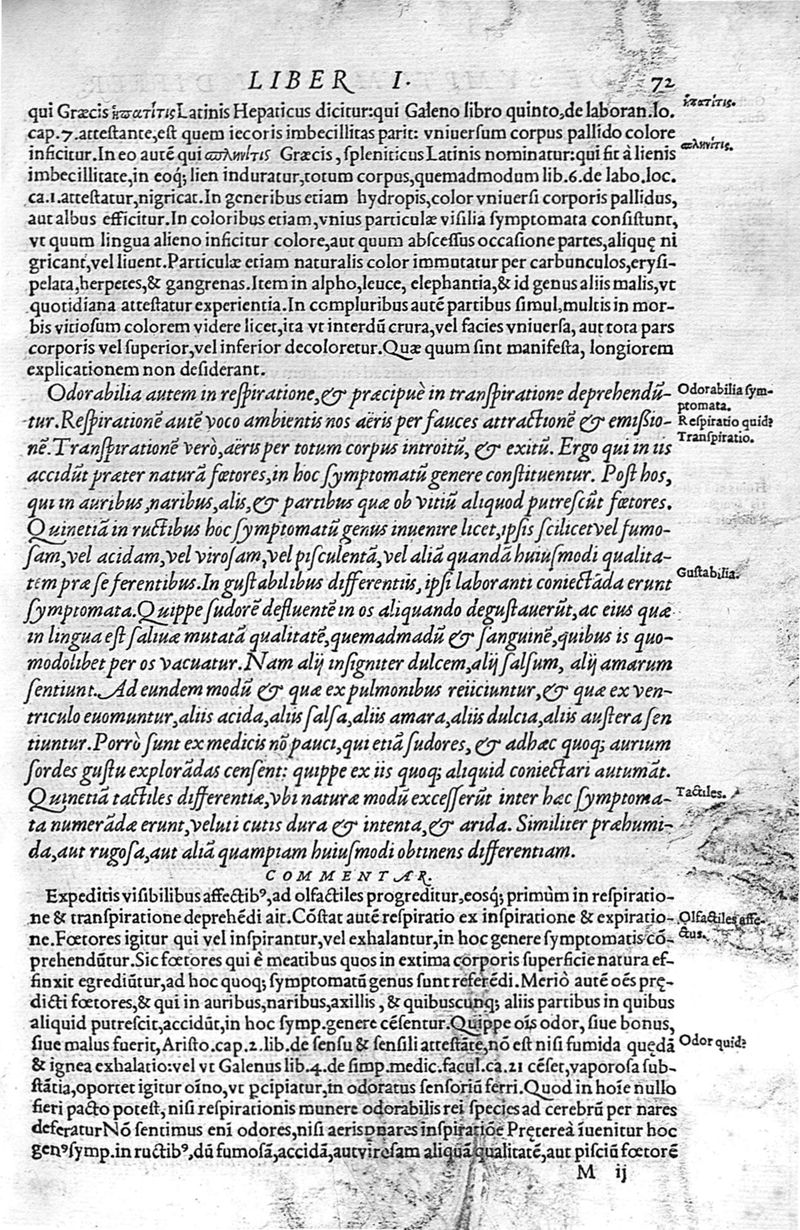 LIBER I. 72
qui Græcis ἡπατίτις Latinis Hepaticus dicitur:qui Galeno libro quinto,de laboran.lo.
ἡπατίτις.
cap.7.attestante,est quem iecoris imbecillitas parit: vniuersum corpus pallido colore
inficitur.In eo autē qui σπληνίτις Græcis, spleniticus Latinis nominatur:qui fit à lienis
σπληνίτις.
imbecillitate, in eoq; lien induratur,totum corpus,quemadmodum lib.6.de labo.loc.
ca.1.attestatur,nigricat.In generibus etiam hydropis,color vniuersi corporis pallidus,
aut albus efficitur.In coloribus etiam,vnius particulæ visilia symptomata consistunt,
vt quum lingua alieno inficitur colore,aut quum abscessus occasione partes,aliquę ni
gricant,vel liuent.Particulæ etiam naturalis color immutatur per carbunculos,erysi-
pelata,herpetes,& gangrenas.Item in alpho,leuce, elephantia,& id genus aliis malis,vt
quotidiana attestatur experientia.In compluribus autē partibus simul,multis in mor-
bis vitiosum colorem videre licet,ita vt interdū crura,vel facies vniuersa, aut tota pars
corporis vel superior,vel inferior decoloretur.Quæ quum sint manifesta, longiorem
explicationem non desiderant.
Odorabilia autem in respiratione,& præcipuè in transpiratione deprehendū-
Odorabilia sym-
ptomata.
tur.Respirationē autē voco ambientis nos aëris per fauces attractionē & emißio-
Respiratio quid?
nē.Transpirationē verò,aëris per totum corpus introitū, & exitū. Ergo qui in iis
Transpiratio.
accidūt præter naturā fœtores,in hoc symptomatū genere constituentur. Post hos,
qui in auribus,naribus,alis,& partibus quæ ob vitiū aliquod putrescūt fœtores.
Quinetiā in ructibus hoc symptomatū genus inuenire licet,ipsis scilicet vel fumo-
sam,vel acidam,vel virosam,vel pisculentā,vel aliā quandā huiusmodi qualita-
tem præ se ferentibus.In gustabilibus differentiis, ipsi laboranti coniectāda erunt
Gustabilia.
symptomata.Quippe sudorē defluentē in os aliquando degustauerūt,ac eius quæ
in lingua est saliuæ mutatā qualitatē,quemadmadū & sanguinē,quibus is quo-
modolibet per os vacuatur. Nam alij insigniter dulcem,alij salsum, alij amarum
sentiunt.Ad eundem modū & quæ ex pulmonibus reiiciuntur,& quæ ex ven-
triculo euomuntur,aliis acida,aliis salsa,aliis amara,aliis dulcia,aliis austera sen
tiuntur.Porrò sunt ex medicis nō pauci,qui etiā sudores, & adhæc quoq; aurium
sordes gustu explorādas censent: quippe ex iis quoq; aliquid coniectari autumāt.
Quinetiā tactiles differentiæ,vbi naturæ modū excesserūt inter hæc symptoma-
Tactiles.
ta numerādæ erunt,veluti cutis dura & intenta,& arida. Similiter præhumi-
da,aut rugosa,aut aliā quampiam huiusmodi obtinens differentiam.
COMMENTAR.
Expeditis visibilibus affectibꝰ,ad olfactiles progreditur,eosq; primùm in respiratio-
ne & transpiratione deprehēdi ait.Cōstat autē respiratio ex inspiratione & expiratio-
Olfactiles affe-
ctus.
ne.Fœtores igitur qui vel inspirantur,vel exhalantur,in hoc genere symptomatis cō-
prehendūtur.Sic fœtores qui è meatibus quos in extima corporis superficie natura ef-
finxit egrediūtur,ad hoc quoq; symptomatū genus sunt referēdi.Meriò autē oēs prę-
dicti fœtores,& qui in auribus,naribus,axillis , & quibuscunq; aliis partibus in quibus
aliquid putrescit,accidūt,in hoc symp.genere cēsentur.Quippe oīs odor, siue bonus,
siue malus fuerit,Aristo.cap.2.lib.de sensu & sensili attestāte,nō est nisi fumida quędā
Odor quid?
& ignea exhalatio:vel vt Galenus lib.4.de simp.medic.facul.ca.21 cēset,vaporosa sub-
stātia,oportet igitur oīno,vt pcipiatur,in odoratus sensoriū ferri.Quod in hoīe nullo
fieri pacto potest, nisi respirationis munere odorabilis rei species ad cerebrū per nares
deferatur Nō sentimus eni odores,nisi aeris p nares inspiratiōe Prętereà īuenitur hoc
genꝰ symp.in ructibꝰ,dū fumosā,accidā,aut virosam aliquā qualitatē,aut pisciū fœtorē
M ij